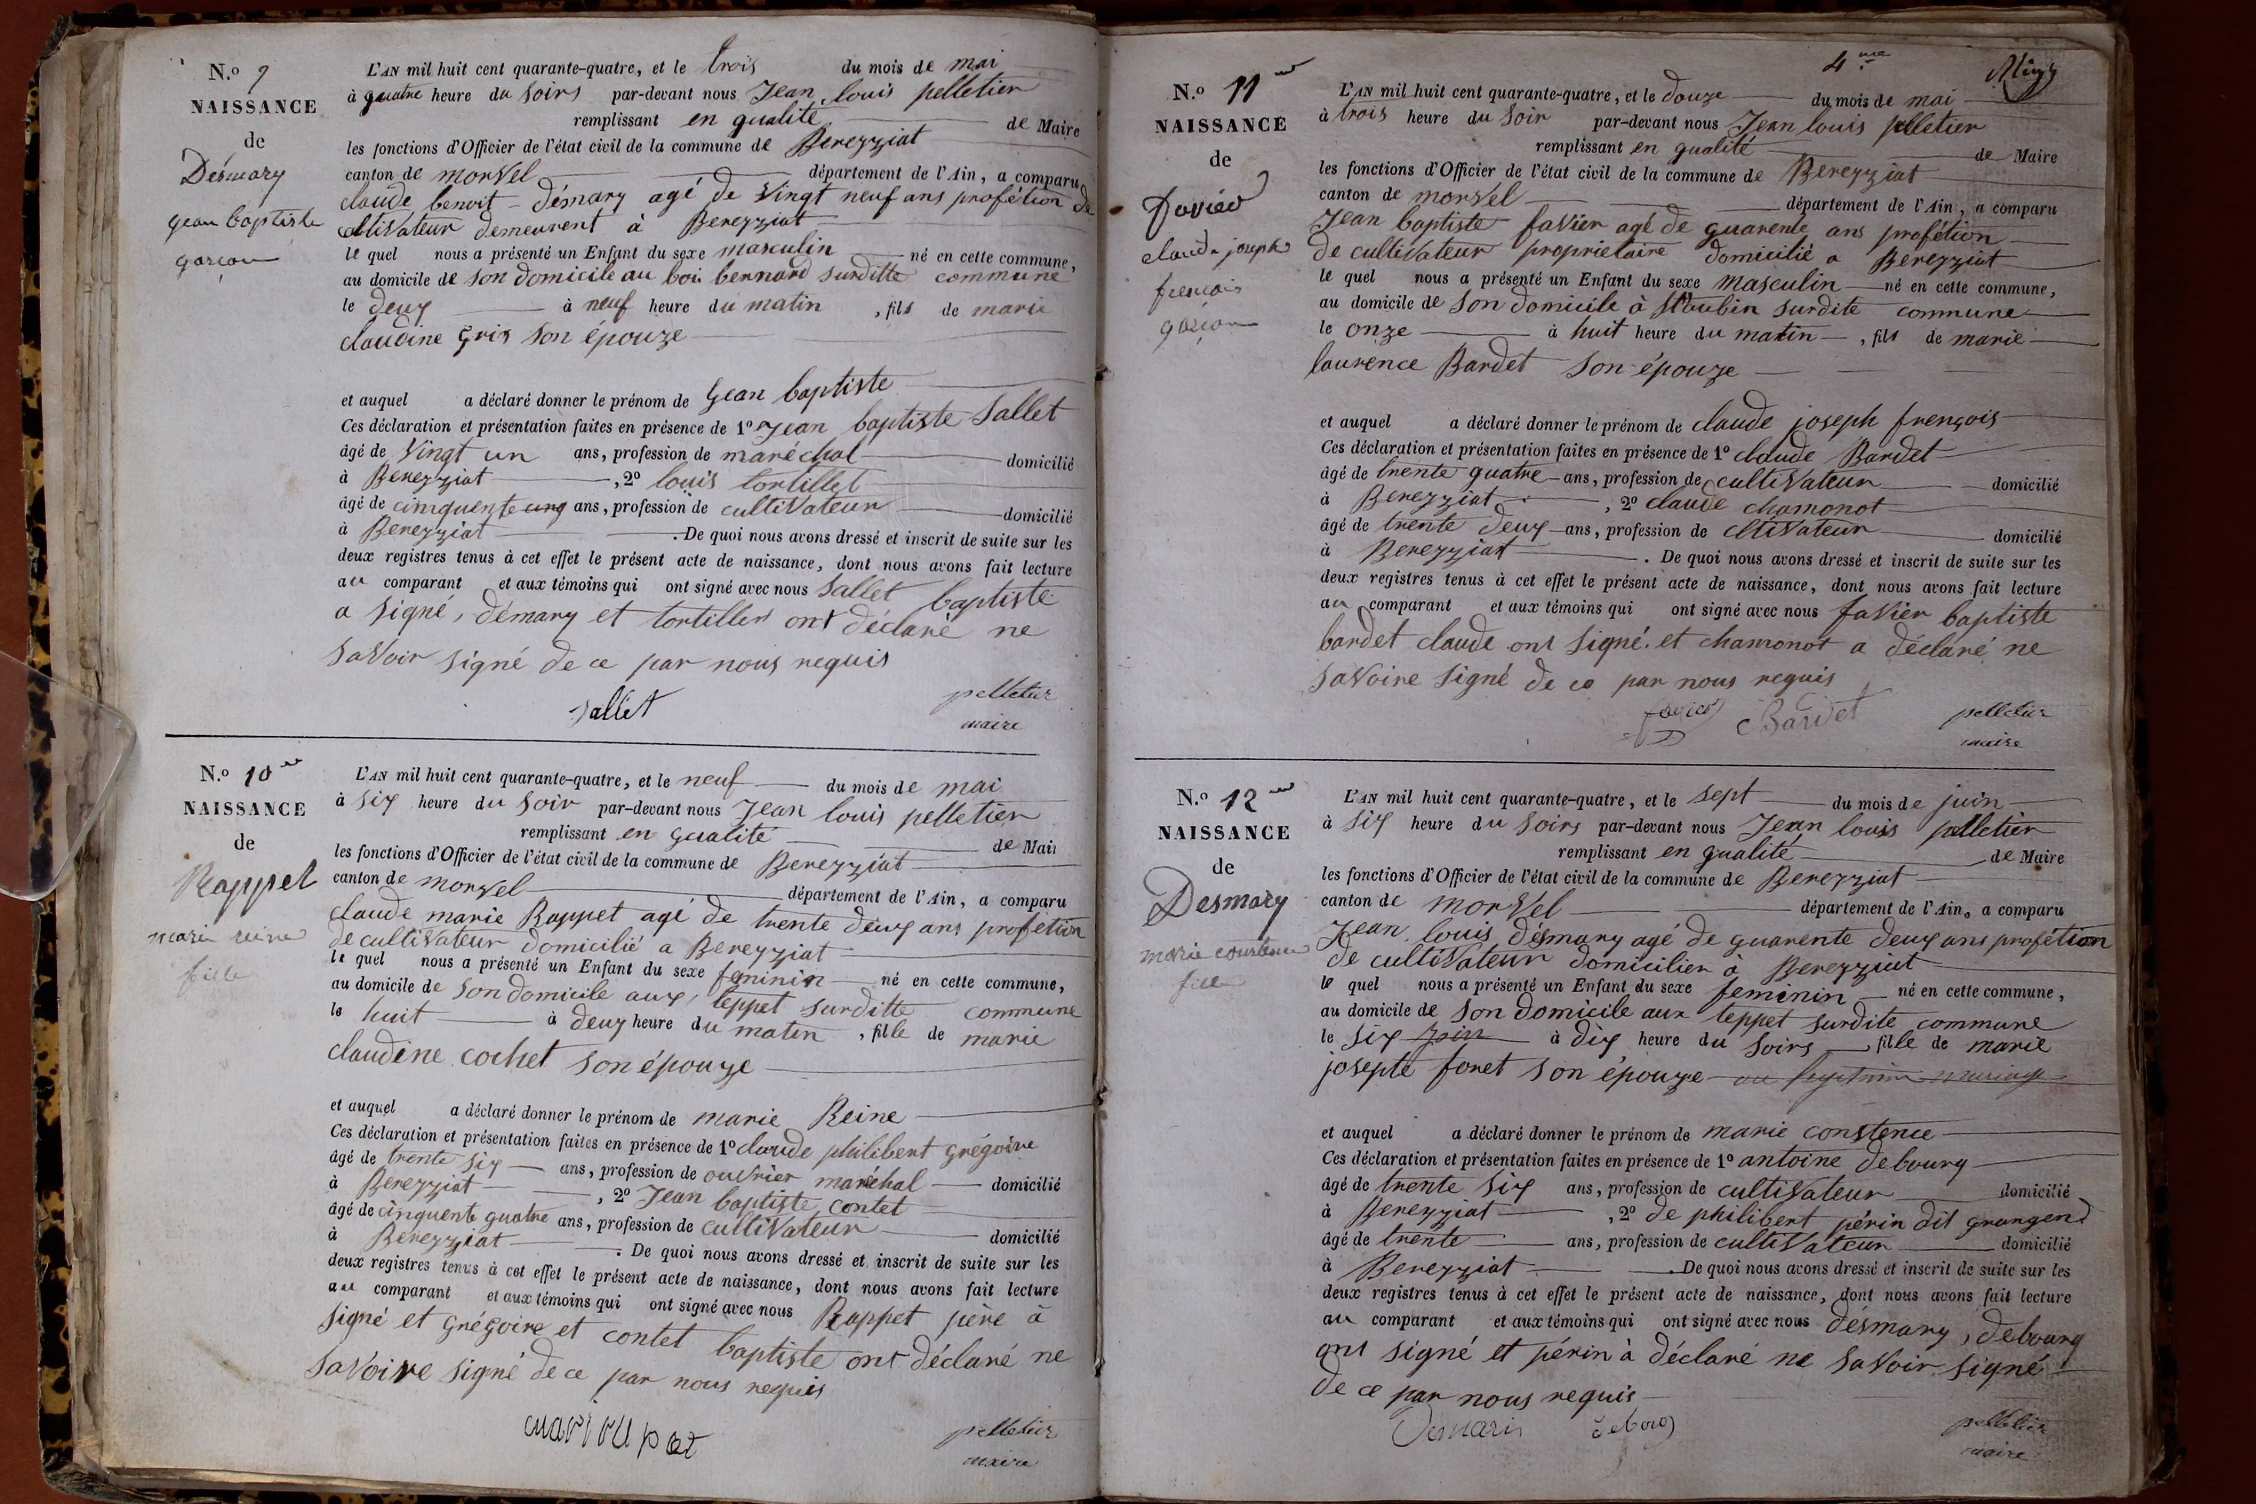 N.o 9
NAISSANCE
de
Désmary
gean baptiste
garçon
L'AN mil huit cent quarante-quatre, et le trois du mois de mai
à quatre heure du soirs par-devant nous Jean louis pelletier
remplissant en qualité de Maire
les fonctions d'Officier de l'état civil de la commune de Bereyziat
canton de morvel département de l'Ain, a comparu
claude benoit démary agé de vingt neuf ans profétion de
cltivateur demeurent à Bereyziat
le quel nous a présenté un Enfant du sexe masculin né en cette commune,
au domicile de son domicile au bois bernard surditte commune
le deux à neuf heure du matin , fils de marie
claudine gris son épouze
et auquel a déclaré donner le prénom de gean baptiste
Ces déclaration et présentation faites en présence de 1º Jean baptiste Sallet
âgé de vingt un ans, profession de maréchal domicilié
à Bereyziat , 2º louis tortillet
âgé de cinquente cinq ans, profession de cultivateur domicilié
à Bereyziat . De quoi nous avons dressé et inscrit de suite sur les
deux registres tenus à cet effet le présent acte de naissance, dont nous avons fait lecture
au comparant et aux témoins qui ont signé avec nous Sallet baptiste
a signé, démary et tortillet ont déclaré ne
savoir signé de ce par nous requis
Sallet
pelletier
maire
N.o 10
NAISSANCE
de
Rappet
marie reine
fille
L'AN mil huit cent quarante-quatre, et le neuf du mois de mai
à six heure du soir par-devant nous Jean louis pelletier
remplissant en qualité de Mair
les fonctions d'Officier de l'état civil de la commune de Bereyziat
canton de morvel département de l'Ain, a comparu
claude marie Rappet agé de trente deux ans profétion
de cultivateur domicilié a Bereyziat
le quel nous a présenté un Enfant du sexe feminin né en cette commune,
au domicile de son domicile aux teppet surditte commune
le huit à deux heure du matin , fille de marie
claudine cochet son épouze
et auquel a déclaré donner le prénom de marie Reine
Ces déclaration et présentation faites en présence de 1º claude philibert grégoire
âgé de trente six ans, profession de ouvrier maréhal domicilié
à Bereyziat , 2º Jean baptiste contet
âgé de cinquente quatre ans, profession de cultivateur domicilié
à Bereyziat . De quoi nous avons dressé et inscrit de suite sur les
deux registres tenus à cet effet le présent acte de naissance, dont nous avons fait lecture
au comparant et aux témoins qui ont signé avec nous Rappet père à
signé et grégoire et contet baptiste ont déclaré ne
savoire signé de ce par nous requis
pelletier
maire
4me
N.o 11
NAISSANCE
de
claude joseph
françois
garçon
L'AN mil huit cent quarante-quatre, et le douze du mois de mai
à trois heure du soir par-devant nous Jean louis pelletier
remplissant en qualité de Maire
les fonctions d'Officier de l'état civil de la commune de Bereyziat
canton de morvel département de l'Ain, a comparu
Jean baptiste favier agé de quarente ans profétion
de cultivateur proprietaire domicilié a Bereyziat
le quel nous a présenté un Enfant du sexe masculin né en cette commune,
au domicile de son domicile à St oubin surdite commune
le onze à huit heure du matin , fils de marie
laurence Bardet son épouze
et auquel a déclaré donner le prénom de claude joseph françois
Ces déclaration et présentation faites en présence de 1º claude Bardet
âgé de trente quatre ans, profession de cultivateur domicilié
à Bereyziat , 2º claude chamonot
âgé de trente deux ans, profession de cltivateur domicilié
à Bereyziat . De quoi nous avons dressé et inscrit de suite sur les
deux registres tenus à cet effet le présent acte de naissance, dont nous avons fait lecture
au comparant et aux témoins qui ont signé avec nous favier baptiste
bardet claude ont signé et chamonot a déclaré ne
savoire signé de ce par nous requis
Bardet
pelletier
maire
N.o 12
NAISSANCE
de
Desmary
marie
fille
L'AN mil huit cent quarante-quatre, et le sept du mois de juin
à six heure du soirs par-devant nous Jean louis pelletier
remplissant en qualité de Maire
les fonctions d'Officier de l'état civil de la commune de Bereyziat
canton de morvel département de l'Ain, a comparu
Jean louis désmary agé de quarente deux ans profétion
de cultivateur domicilier à Bereyziat
le quel nous a présenté un Enfant du sexe feminin né en cette commune,
au domicile de son domicile aux teppet surdite commune
le six juin à dix heure du soirs fille de marie
josepte foret son épouze
et auquel a déclaré donner le prénom de marie constence
Ces déclaration et présentation faites en présence de 1º antoine debourg
âgé de trente six ans, profession de cultivateur domicilié
à Bereyziat , 2º de philibert périn dit grangend
âgé de trente ans, profession de cultivateur domicilié
à Bereyziat . De quoi nous avons dressé et inscrit de suite sur les
deux registres tenus à cet effet le présent acte de naissance, dont nous avons fait lecture
au comparant et aux témoins qui ont signé avec nous désmary, debourg
ont signé et périn à déclaré ne savoir signé
de ce par nous requis
Desmaris
pelletier
maire